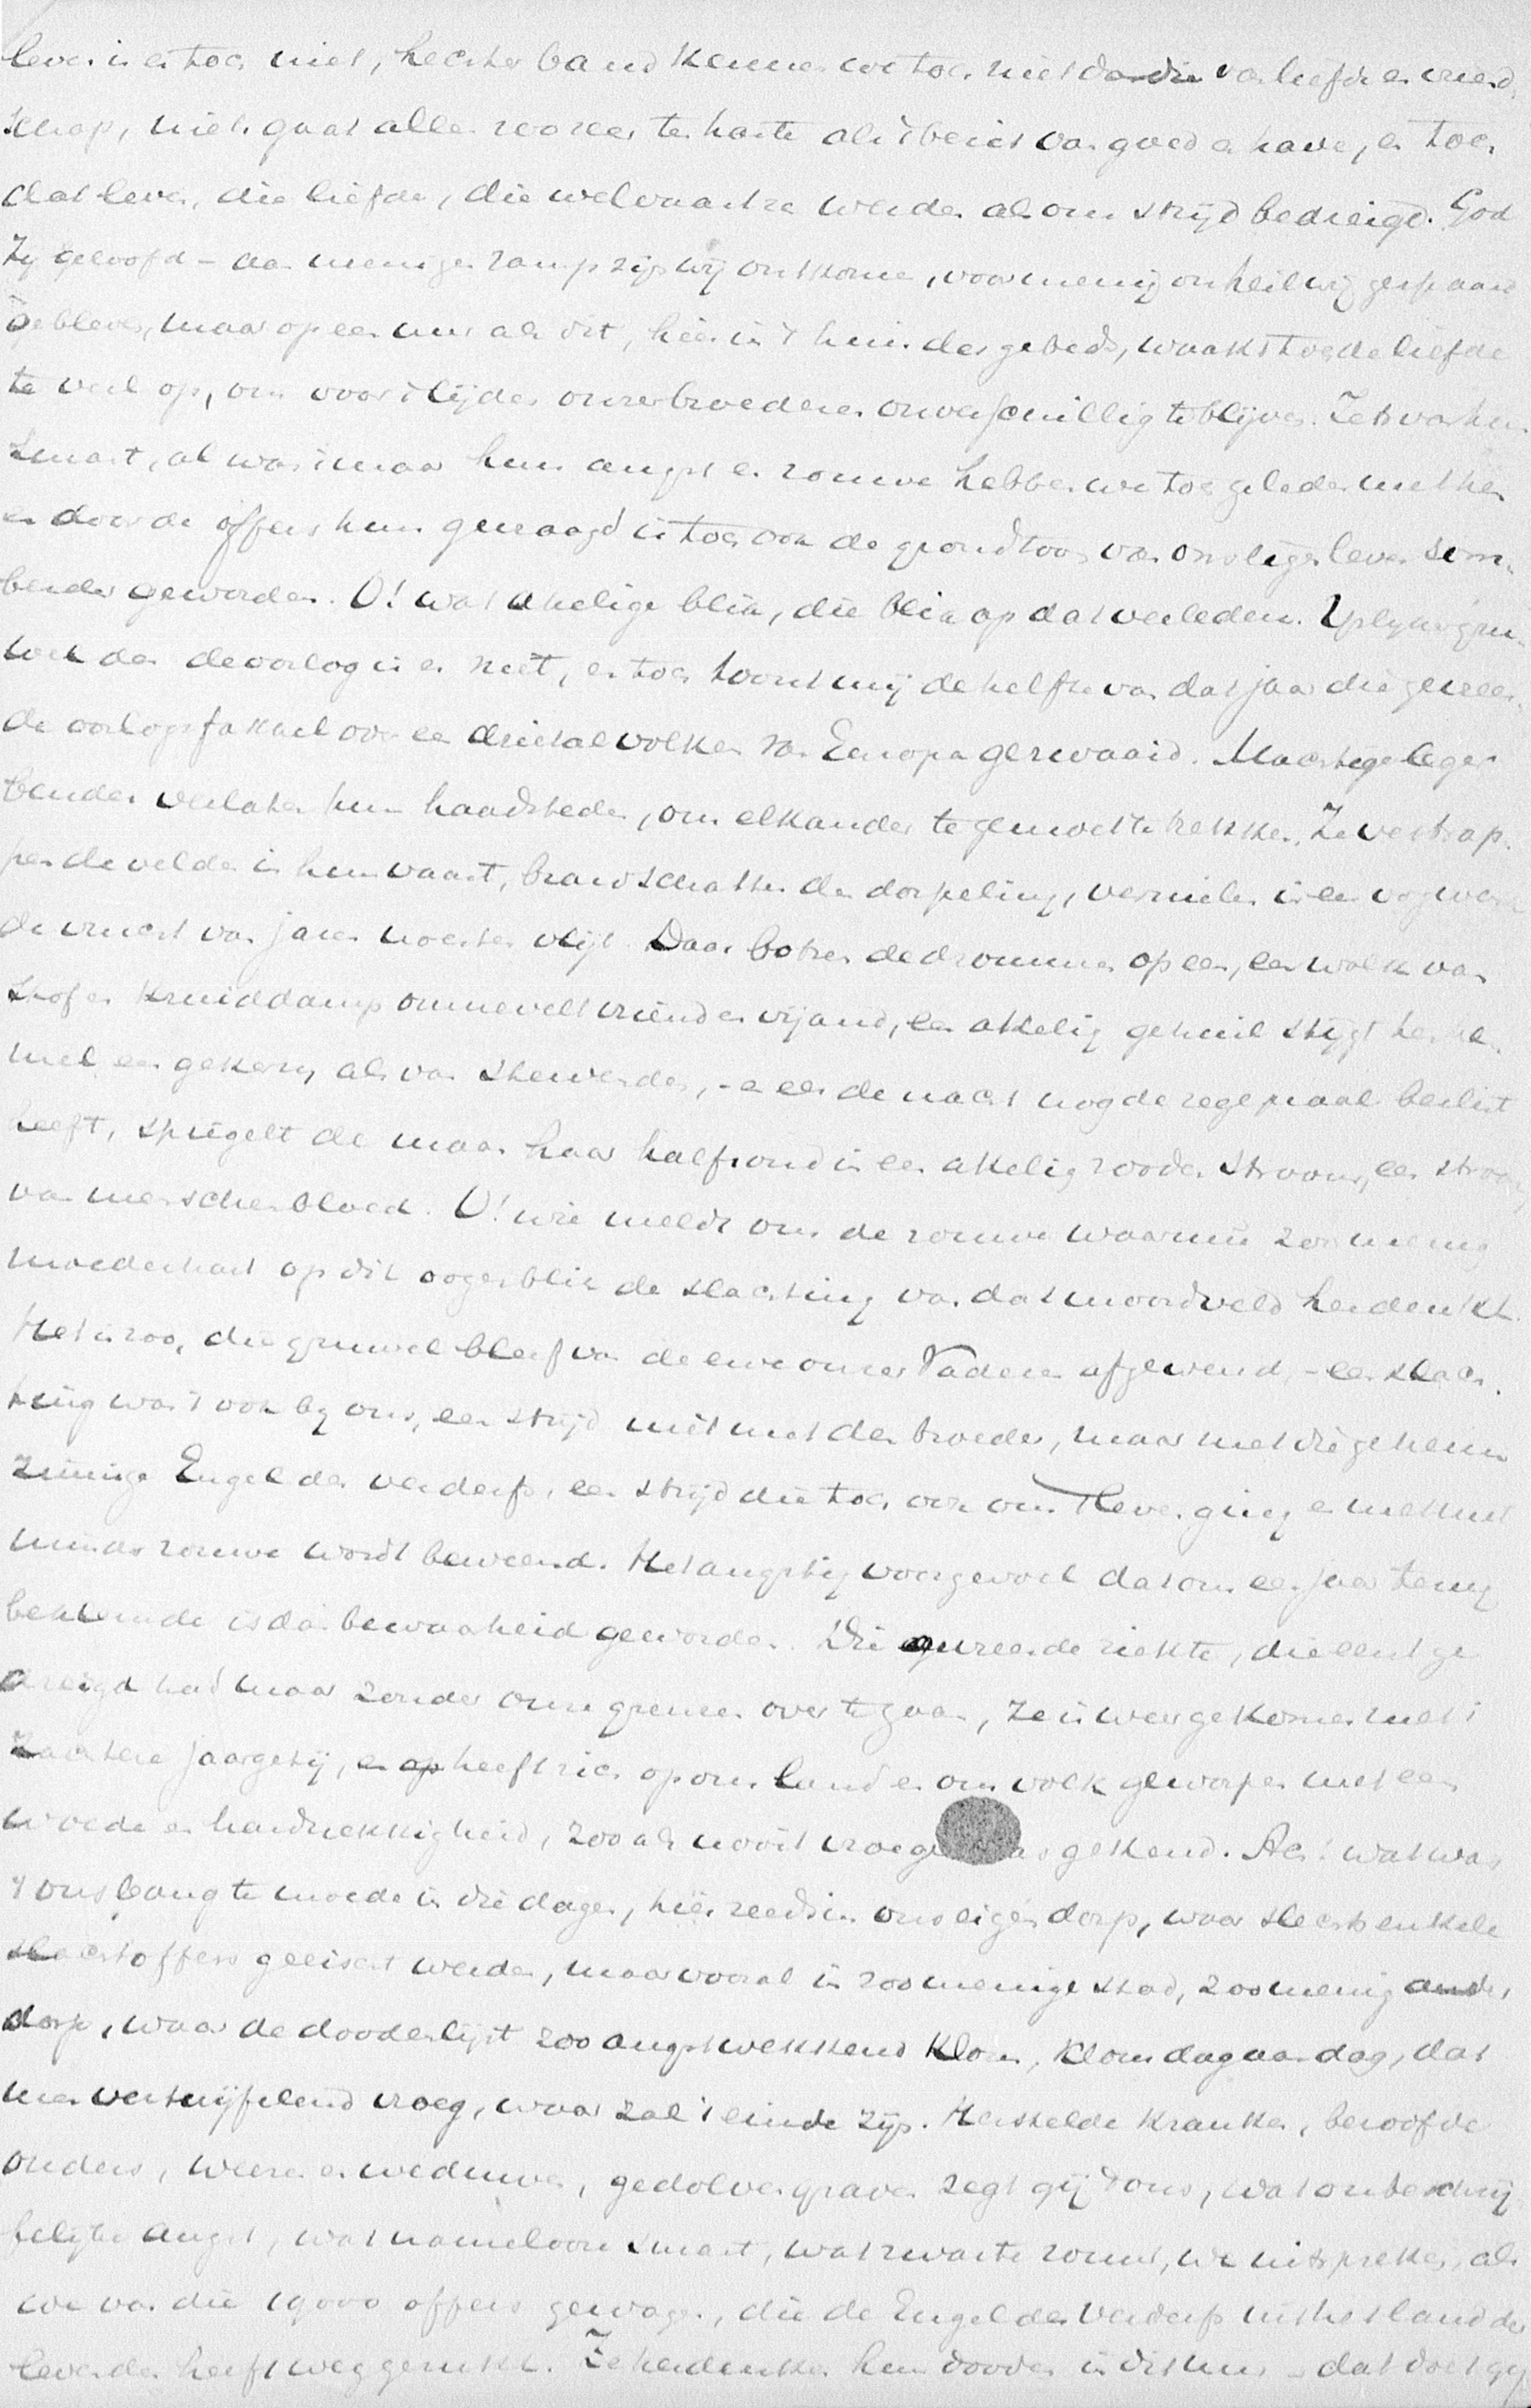 leven is er toch niet, hechter band kennen we toch niet dan die van liefde en vriend
schap, niets gaat allen zoozeer ter harte als 't bezit van goed en have, en toch
dat leven, die liefde, die welvaart ze werden als om strijd bedreigd. God
zij geloofd – aan menigen ramp zijn wij ontkomen, voor menig onheil wij gespaard
gebleven, maar op een uur als dit, hier in 't huis des gebeds, waakt toch de liefde
te veel op, om voor 't lijden onzer broederen onverschillig te blijven. Iets van hun
smart, al was 't maar hun angst en rouwe hebben we toch geleden met hen
en door de offers hun gevraagd is toch ook de grondtoon van ons eigen leven som-
berder geworden. O! wat akelige blik, die blik op dat verleden. Yslyker gru-
wel dan de oorlog is er niet, en toch toont mij de helft van dat jaar die
de oorlogsfakkel over een drietal volken van Europa gezwaaid. Machtige leger
benden verlaten hun haardsteden, om elkander te gemoet te trekken. Ze vertrap-
pen de velden in hun vaart, brandschatten den dorpeling, vernielen in een oogwenk
de vrucht van jaren noesten vlijt. Daar botsen de drommen op een, een wolk van
stof en kruiddamp omnevelt vriend en vijand, een akelig gehuil stijgt ten he-
mel een gekerm als van stervenden, – en eer de nacht nog de zegepraal beslist
heeft, spiegelt de maan haar halfrond in een akelig rooden stroom, een stroom
van menschenbloed. O! wie meldt ons de rouwe waarmee zoo menig
moederhart op dit oogenblik de slachting van dat moordveld herdenkt.
Het is zoo, die gruwel bleef van de erve onzer Vaderen afgewend, – een slach-
ting was 't ook by ons, een strijd niet met den broeder, maar met die geheim
zinnige Engel des verderfs, een strijd die toch ook om 't leven ging en met niet
minder rouwe wordt beweend. Het angstig voorgevoel dat ons een jaar terug
beklemde is dan bewaarheid geworden. Die gureende ziekte, die eerst ge
dreigd had maar zonder onze grenzen over te gaan, ze is weergekomen met 't
zachtere jaargetij, en heeft zich op ons land en ons volk geworpen met een
woede en hardnekkigheid, zooals nooit vroeger was gekend. Ach! wat was
't ons bang te moede in die dagen, hier reeds in ons eigen dorp, waar slechts enkele
slachtoffers geeischt werden, maar vooral in zoo menige stad, zoo menig ander
dorp, waar de doodenlijst zoo angstwekkend klom, klom dag aan dag, dat
men vertwijfelend vroeg, waar zal 't einde zijn. Herstelde kranken, beroofde
ouders, weezen en weduwen, gedolven graven zegt gij 't ons, wat onbeschrij
felijke angst, wat namelooze smart, wat zwarte rouw, we uitspreken, als
we van die 19000 offers gewagen, die de Engel des verderfs uit het land der
levenden heeft weggerukt. Ze herdenken hun dooden in dit uur – dat doet gij